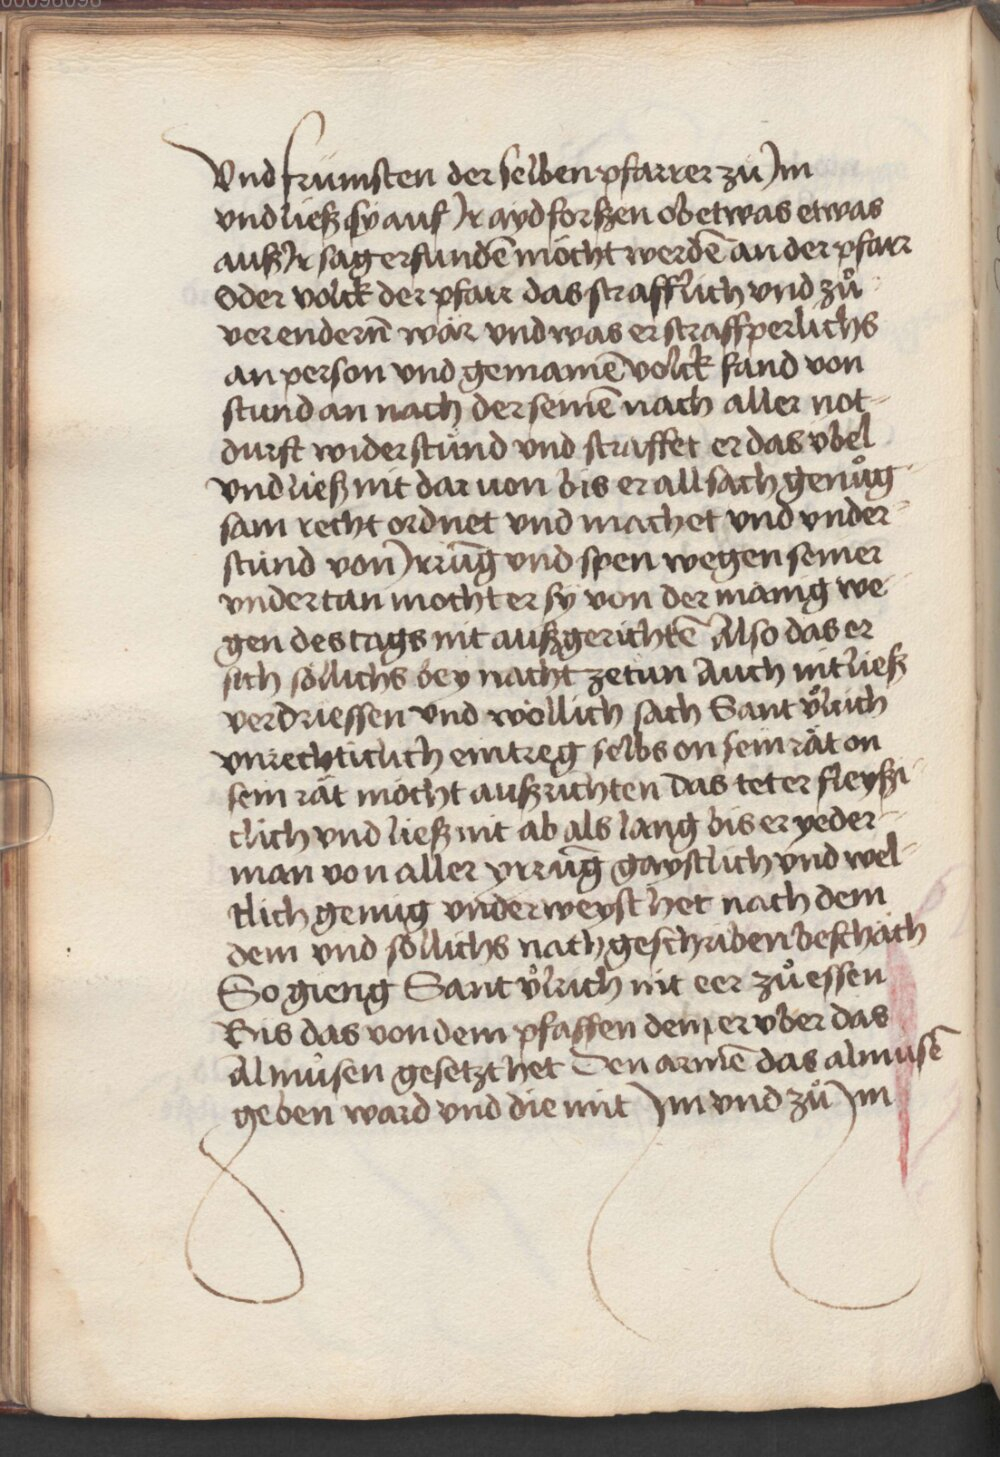 Vnd frümsten der selben pfarrer zu Im
vnd ließ sy auf Ir ayd forßen ob etwas etwas
auß Ir sag erfunden̄ möcht werdē an der pfarr
Oder volck der pfarr das strafflich vnd zů
verendern̄ wär vnd was er straffperlichs
an person vnd gemainē volck fand von
stund an nach der seinē nach aller not-
durft widerstůnd vnd straffet er das vbel
vnd ließ nit dar uon bis er all sach genůg-
sam recht ordnet vnd machet vnd vnder-
stůnd von Irrūg vnd spen wegen seiner
vndertan mocht er sy von der mānig we-
gen des tags nit außgerichtē Also das er
sich söllichs bey nacht zetůn Auch nit ließ
verdriessen vnd wöllich sach Sant vͦlrich
vnrechticlich eintreg selbs on sein rät on
sein rät möcht außrichten Das tet er fleyßi-
clich vnd ließ nit ab als lang bis er yeder-
man von aller yrrūg gaystlich vnd wel-
tlich genug vnderweyst het nach dem
dem vnd söllichs nach geschriben beschäch
So gieng Sant vͦlrich nit eer zů essen
Bis das von dem pfaffen dem er vber das
Almůsen gesetzt het Den armē das almusē
geben ward vnd die mit Im vnd zů Im